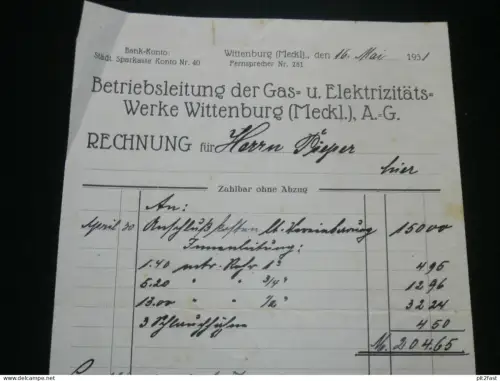 Bank-Konto:
Städt. Sparkasse Konto Nr. 40
Wittenburg (Meckl)., den 16. Mai 1931
Fernsprecher Nr. 281
Betriebsleitung der Gas- u. Elektrizitäts-
Werke Wittenburg (Meckl.), A.-G.
RECHNUNG für Herrn Pieper
hier
Zahlbar ohne Abzug
An:
April 30 Anschlußkosten lt. Vereinbarung 150 00
Innenleitung:
1.40 mtr. Rohr 1" 4 95
5.20 " " 3/4" 12 96
13.00 " " 1/2" 32 24
3 Schlauchhähne 4 50
M. 204.65